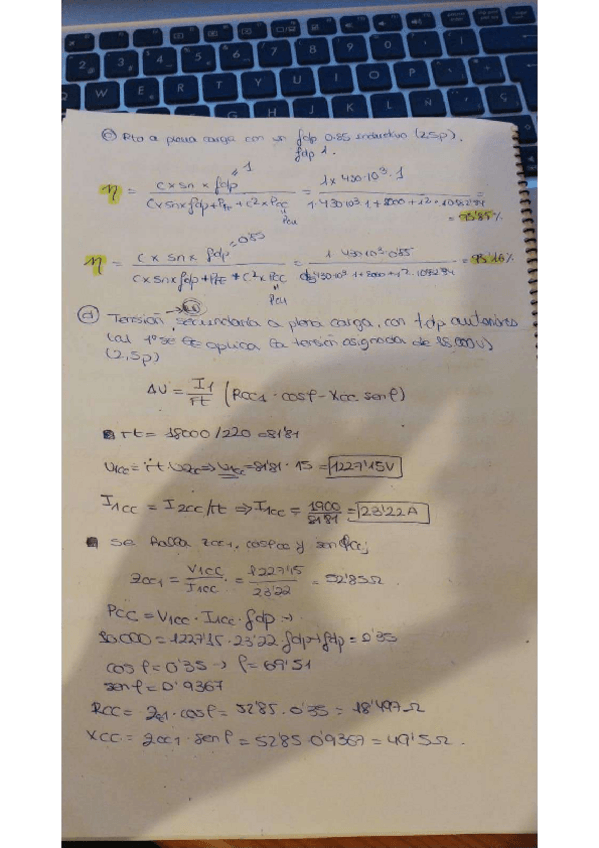 c) Rto a plena carga con un fdp 0.85 inductivo (2,5p).
fdp 1.
η = c x sn x fdp = 1 / c x sn x fdp + PFe + c² x Pcc = 1 x 430·10³·1 / 1·430·10³·1 + 8000 + 1²· = 95'85%
Pcu
η = c x sn x fdp = 0'85 / c x sn x fdp + PFe + c² x Pcc = 1·430·10³·0'85 / = 95'16%
Pcu
d) Tensión secundaria a plena carga, con fdp anteriores
(al 1º se le aplica la tensión asignada de 18.000V)
(2,5p)
ΔU = I1/rt (Rcc1 · cosφ - Xcc senφ)
rt = 18000/220 = 81'81
U1cc = rt · U2cc => U1cc = 81'81 · 15 = 1227'15V
I1cc = I2cc/rt => I1cc = 1900/81'81 = 23'22A
Se halla Zcc1, cosφcc y senφcc;
Zcc1 = V1cc/I1cc = 1227'15/23'22 = 52'85Ω
Pcc = V1cc · I1cc · fdp ->
10.000 = 1227'15 · 23'22 · fdp -> fdp = 0'35
cos φ = 0'35 -> φ = 69'51
sen φ = 0'9367
Rcc = Zcc1 · cosφ = 52'85 · 0'35 = 18'497Ω
Xcc = Zcc1 · senφ = 52'85 · 0'9367 = 49'5Ω.